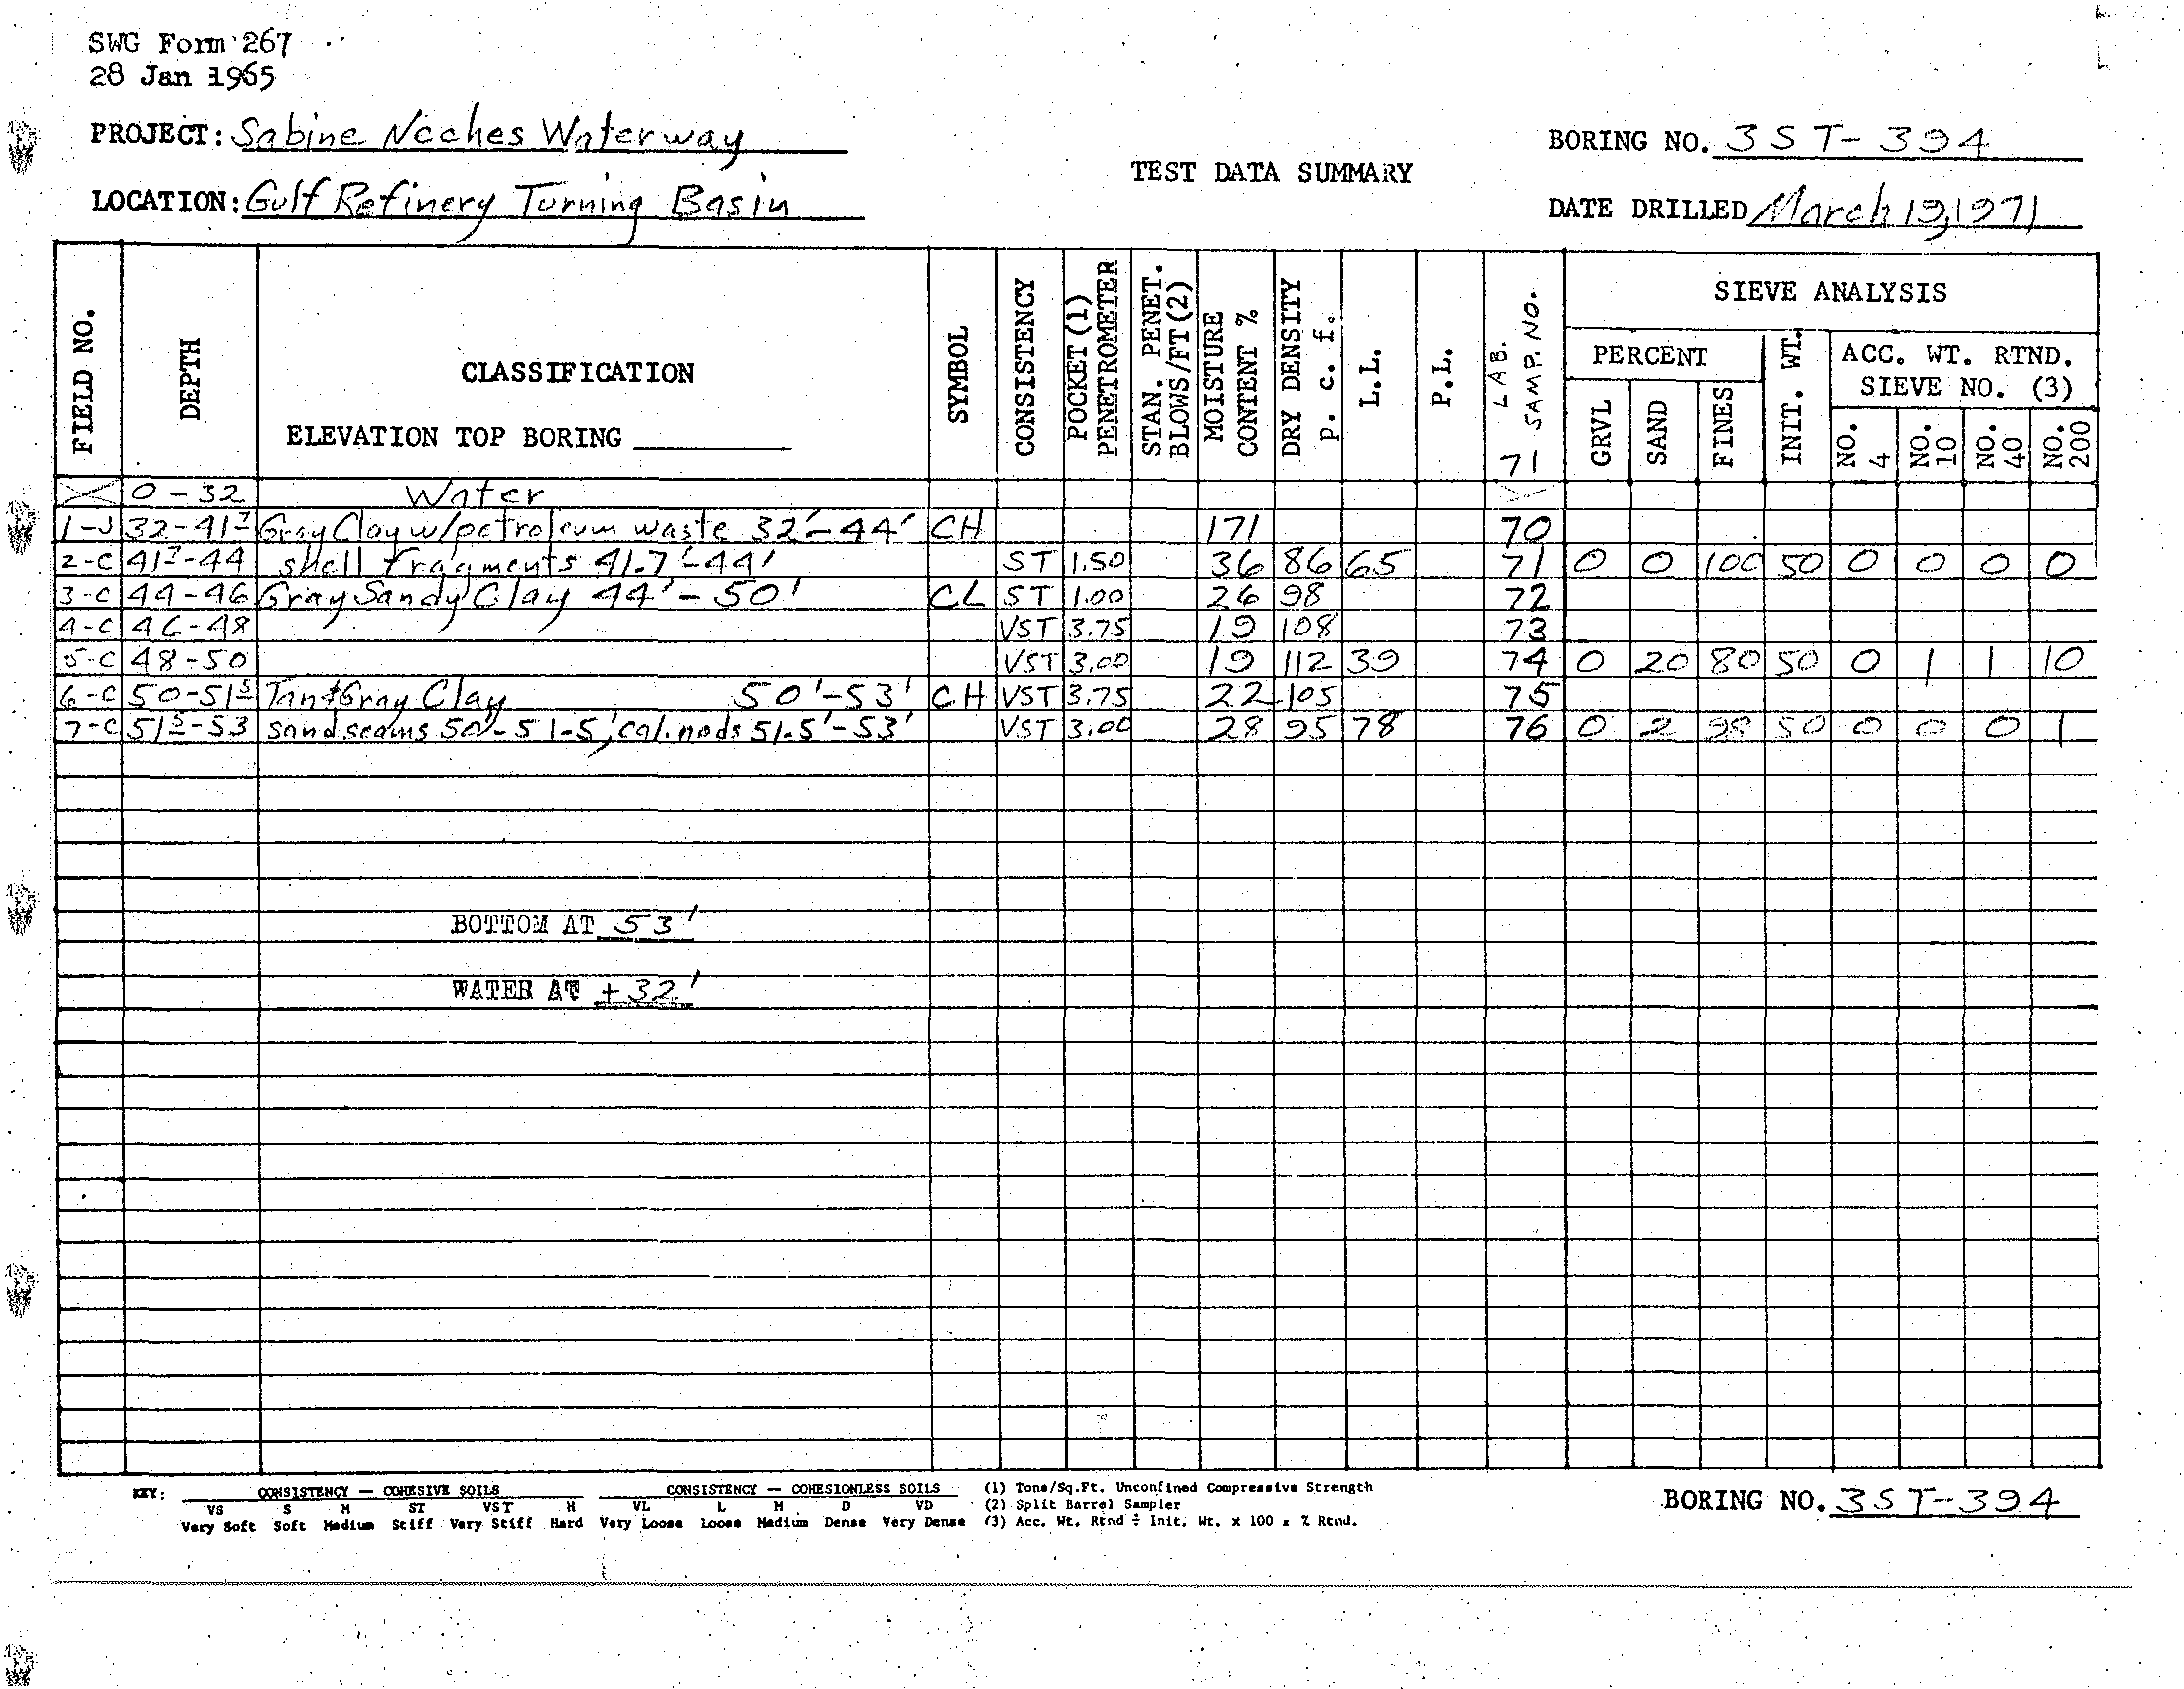 SWG Form 267
28 Jan 1965
PROJECT: Sabine Neches Waterway
LOCATION: Gulf Refinery Turning Basin
TEST DATA SUMMARY
BORING NO. 3ST-394
DATE DRILLED March 19, 1971
FIELD NO. DEPTH CLASSIFICATION SYMBOL CONSISTENCY POCKET (1) PENETROMETER STAN. PENET. BLOWS/FT (2) MOISTURE CONTENT % DRY DENSITY p. c. f. L.L. P.L. LAB. SAMP. NO. SIEVE ANALYSIS
ELEVATION TOP BORING
71
PERCENT INIT. WT. ACC. WT. RTND. SIEVE NO. (3)
GRVL SAND FINES NO. 4 NO. 10 NO. 40 NO. 200
0-32 Water
1-J 32-41.7 Gray Clay w/petroleum waste 32'-44' CH 171 70
2-C 41.7-44 shell fragments 41.7'-44' ST 1.50 36 86 65 71 0 0 100 50 0 0 0 0
3-C 44-46 Gray Sandy Clay 44'-50' CL ST 1.00 26 98 72
4-C 46-48 VST 3.75 19 108 73
5-C 48-50 VST 3.00 19 112 39 74 0 20 80 50 0 1 1 10
6-C 50-51.5 Tan & Gray Clay 50'-53' CH VST 3.75 22 105 75
7-C 51.5-53 sand seams 50'-51.5', cal. nods 51.5'-53' VST 3.00 28 95 78 76 0 2 98 50 0 0 0 1
BOTTOM AT 53'
WATER AT +32'
KEY: CONSISTENCY — COHESIVE SOILS CONSISTENCY — COHESIONLESS SOILS (1) Tons/Sq.Ft. Unconfined Compressive Strength
VS S M ST VST H VL L M D VD (2) Split Barrel Sampler
Very Soft Soft Medium Stiff Very Stiff Hard Very Loose Loose Medium Dense Very Dense (3) Acc. Wt. Rtnd ÷ Init. Wt. x 100 = % Rtnd.
BORING NO. 3ST-394